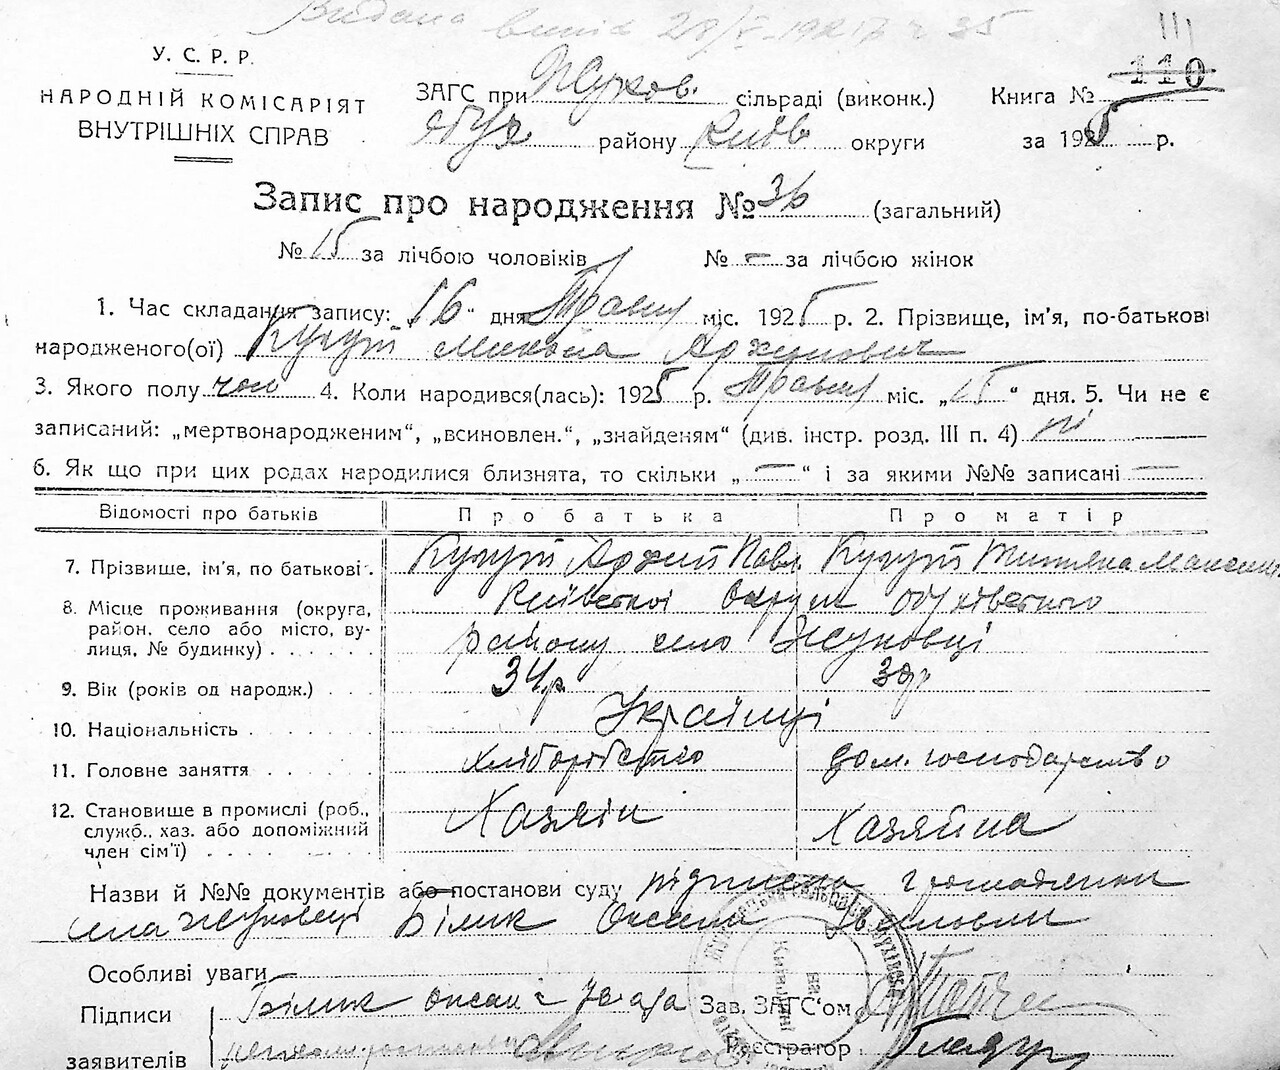 Видана
У. С. Р. Р.
НАРОДНІЙ КОМІСАРІЯТ
ВНУТРІШНІХ СПРАВ
ЗАГС при Жуков. сільраді (виконк.)
району Київ округи
Книга № 110 111
за 1925 р.
Запис про народження № 36 (загальний)
№ 15 за лічбою чоловіків № – за лічбою жінок
1. Час складання запису: 16 " дня Травня міс. 1925 р. 2. Прізвище, ім'я, по-батькові
народженого(ої) Кугут Микола Архипович
3. Якого полу чол 4. Коли народився(лась): 1925 р. Травня міс. „15" дня. 5. Чи не є
записаний: „мертвонародженим", „всиновлен.", „знайденям" (див. інстр. розд. III п. 4) ні
6. Як що при цих родах народилися близнята, то скільки „—" і за якими №№ записані —
Відомості про батьків Про батька Про матір
7. Прізвище, ім'я, по батькові. Кугут Архип Павл. Кугут Титяна
8. Місце проживання (округа, район, село або місто, вулиця, № будинку) Київської Округи Обухівського
району село Жуковці
9. Вік (років од народж.) 34 р.
10. Національність Українці
11. Головне заняття хліборобство дом. господарство
12. Становище в промислі (роб., служб., хаз. або допоміжний член сім'ї) Хазяїн Хазяйка
Назви й №№ документів або постанови суду підписка громадянки
села Жуковці Білик Оксани
Особливі уваги
Підписи
заявителів
Білик Оксана
Зав. ЗАГС'ом
Реєстратор